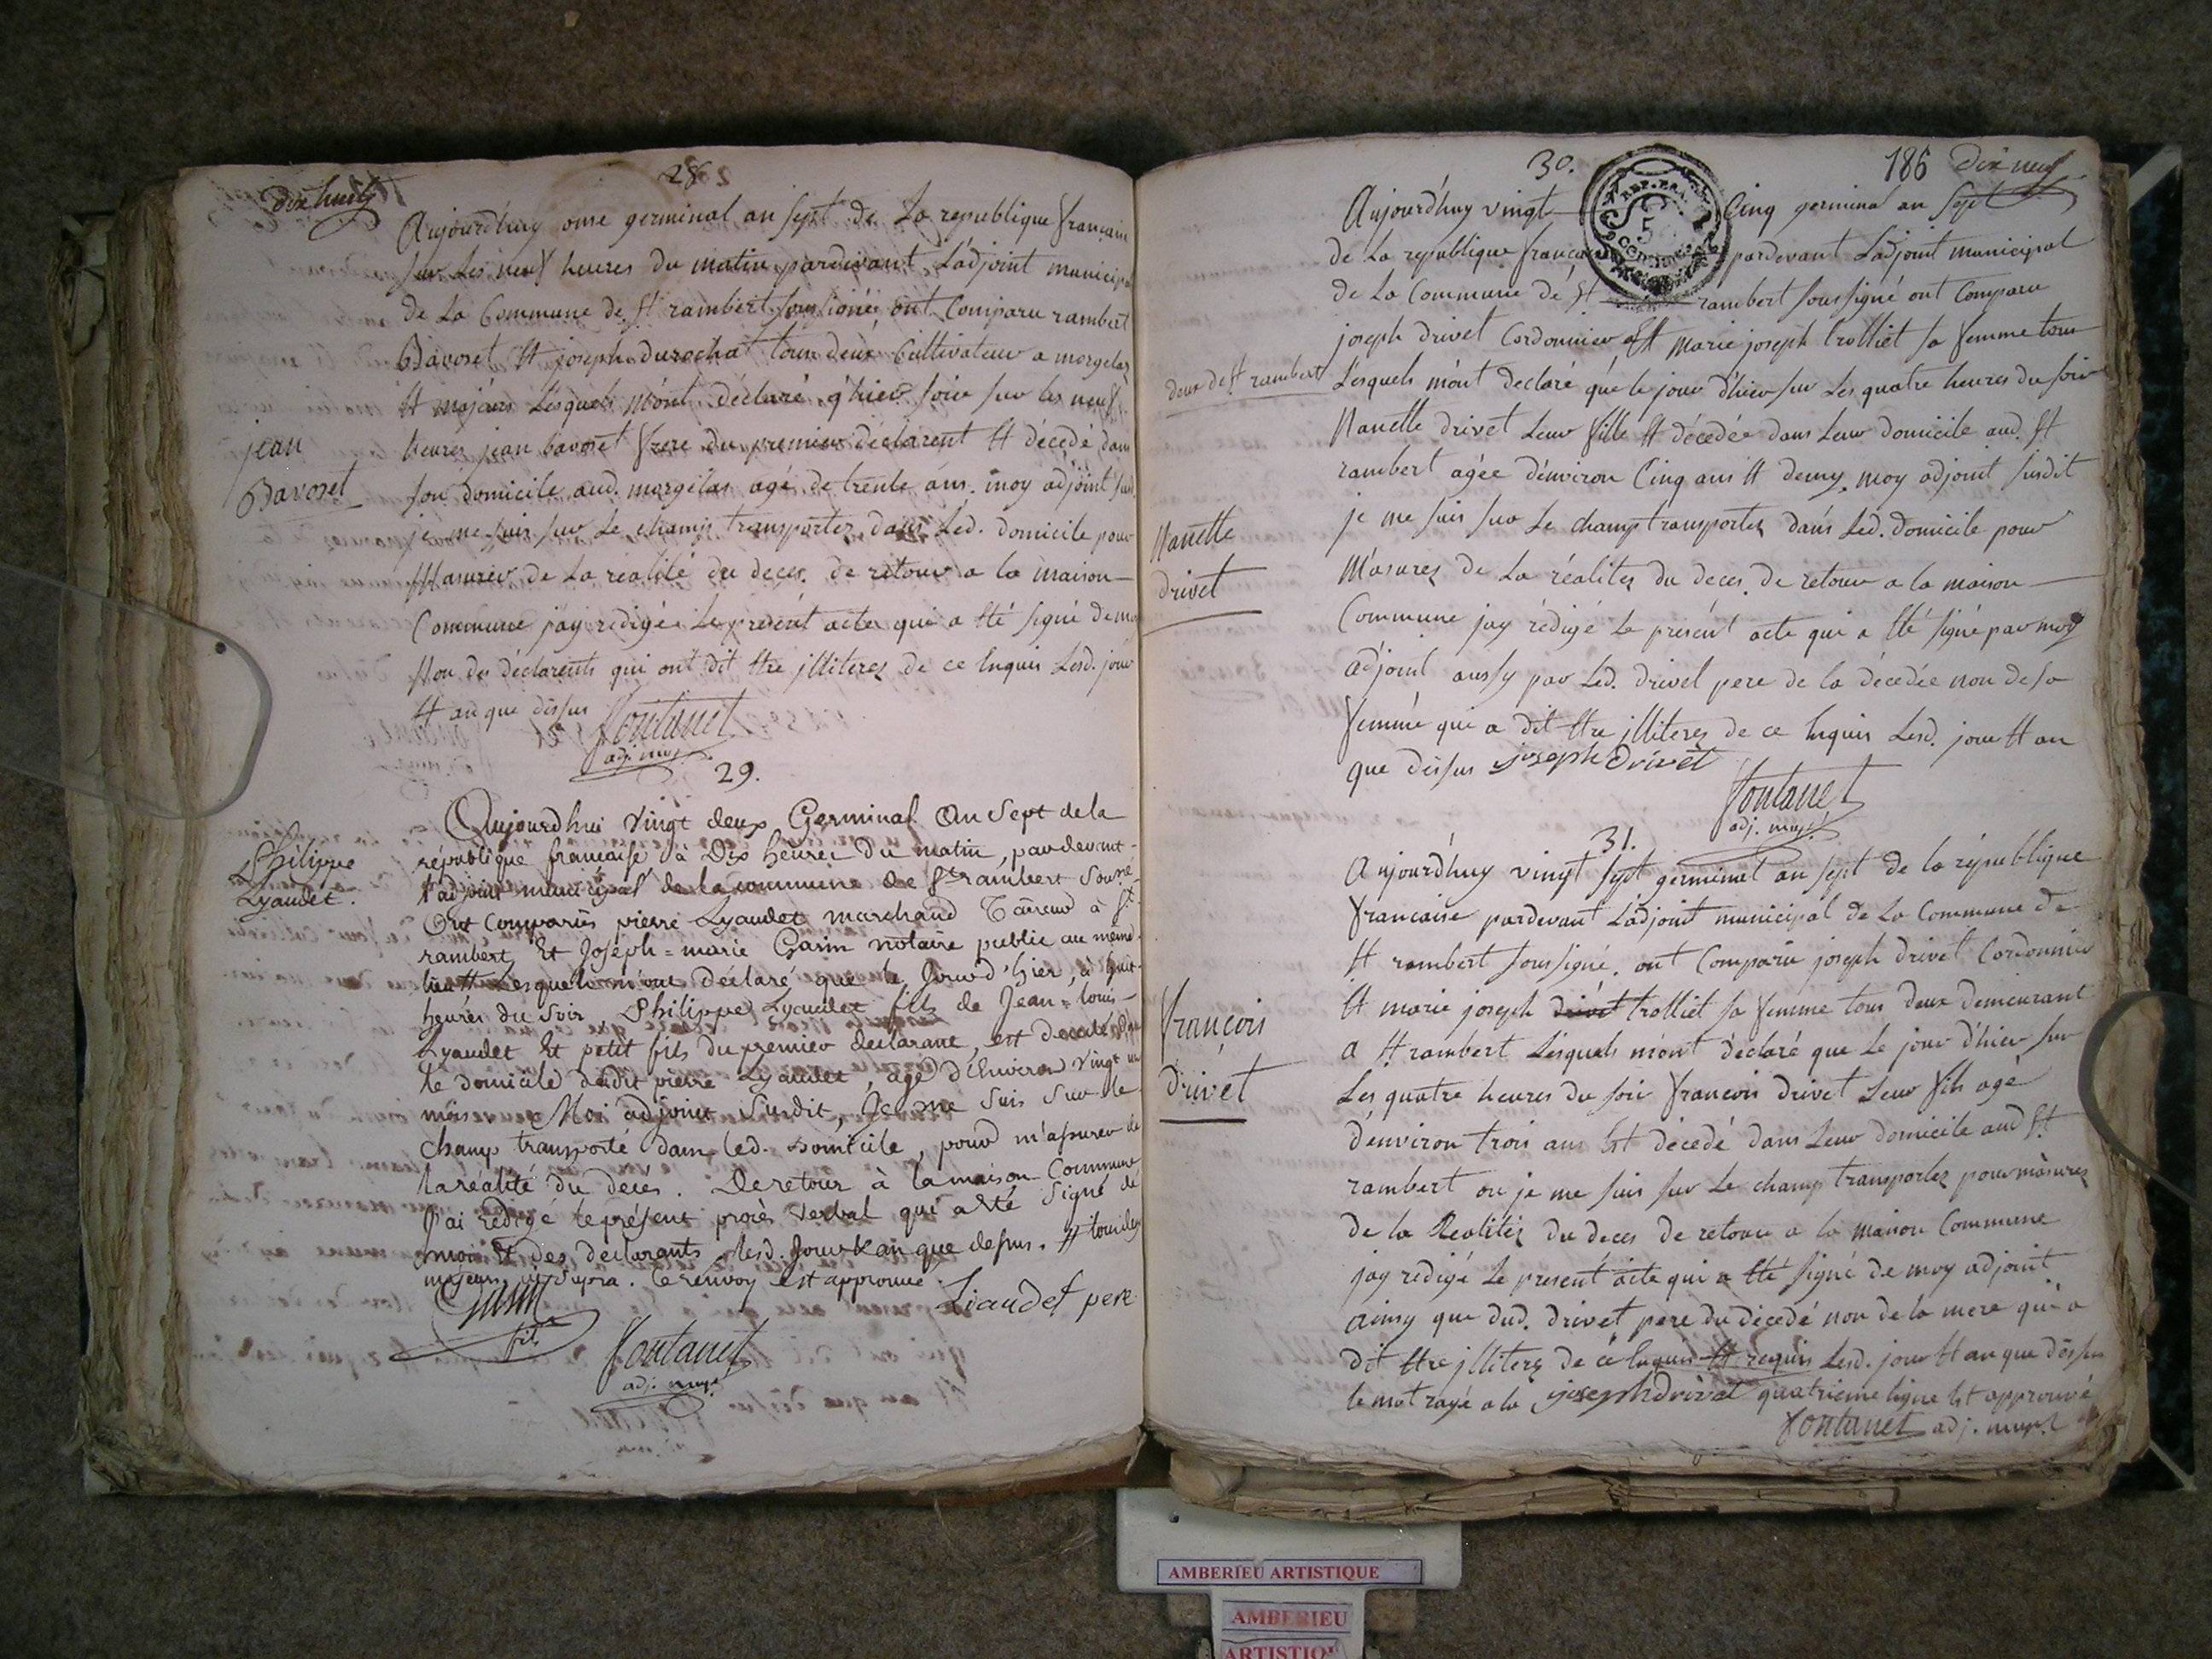 dix huit
28
Aujourd'huy onse germinal an sept de La republique française
sur Les neuf heures du matin pardevant L'adjoint municipal
de La Commune de St rambert soussigné, ont Comparu rambert
Bavoset Et joseph durochat tous deux Cultivateur a morgelas
Et majeurs Lesquels m'ont déclaré q'hier soir sur les neuf
heures jean bavoset frere du premier déclarent Et décedé dans
son domicile aud. morgelas agé de trente ans. moy adjoint susd.
je me suis sur Le champ transportez dans Led. domicile pour
M'asurer de La réalité du deces. de retour a la maison
Commune j'ay redigé Le present acte qui a Eté signé de moy
Non des déclarents qui ont dit Etre jlliterez de ce Enquis Lesd. jour
Et an que dessus
jean
Bavoset
fontanet
adj. mupl
29.
Aujourd'hui Vingt deux Germinal An Sept de la
république française à Dix heures du matin, pardevant
l'adjoint municipal de la commune de St rambert Sousné
Ont Comparüs pierre Lyaudet marchand Taneur à St
rambert, Et Joseph=marie Garin notaire public au même
lieu # Lesquels m'ont déclaré que le Jour d'hier, à huit
heures du Soir, Philippe Lyaudet fils de Jean=louis
Lyaudet Et petit fils du premier déclarant, est décédé dans
le domicile dudit pierre Lyaudet, agé d'Environ Vingt un
mois. Moi adjoint Susdit, Je me Suis Sur le
champ transporté dans led. Domicile, pour m'assurer de
la réalité du décés. De retour à la maison Commune
J'ai rédigé le présent procès verbal qui a Eté Signé de
moi Et des declarants, lesd. Jour & an que dessus. # tous deux
majeurs ut Supra. le renvoy est approuvé.
Philippe
Lyaudet.
Garin
fils
Liaudet pere
fontanet
adj. mupl
30.
186 Dix neuf
REP. FRA.
5
Aujourd'huy vingt Cinq germinal an Sept
de La republique française pardevant L'adjoint municipal
de La Commune de St rambert soussigné ont Comparu
joseph drivet Cordonnier Et marie joseph trolliet sa femme tous
deux de St rambert Lesquels m'ont declaré que le jour d'hier sur Les quatre heures du soir
Nanette drivet Leur fille Et décedée dans Leur domicile aud. St
rambert agée d'environ Cinq ans Et demy. moy adjoint susdit
je me suis sur Le champ transportez dans Led. domicile pour
M'asurez de La réalitez du deces. de retour a la maison
Commune jay rédigé Le présent acte qui a Eté signé par moy
adjoint aussy par Led. drivet pere de la décedée non de sa
femme qui a dit Etre jlliterez de ce Enquis Lesd. jour Et an
que dessus joseph drivet
Nanette
drivet
fontanet
adj. mupl
31.
Aujourd'huy vingt sept germinal an sept de la république
francaise pardevant L'adjoint municipal de La Commune de
St rambert soussigné. ont Comparu joseph drivet Cordonnier
Et marie joseph drivet trolliet sa femme tous deux demeurant
a St rambert Lesquels m'ont déclaré que Le jour d'hier sur
Les quatre heures du soir francois drivet Leur fils agé
d'environ trois ans Est décedé dans Leur domicile aud St
rambert ou je me suis sur Le champ transportez pour m'asurez
de la Realitez du deces de retour a la maison Commune
jay redigé Le present acte qui a Eté signé de moy adjoint
ainsy que dud. drivet pere du décedé non de la mere qui a
dit Etre jlliterez de ce Enquis Et requis Lesd. jour Et an que dessus
le mot rayé a la joseph drivet quatrieme ligne Est approuvé
françois
drivet
fontanet adj. mupl
AMBERIEU ARTISTIQUE
AMBERIEU
ARTISTIQUE